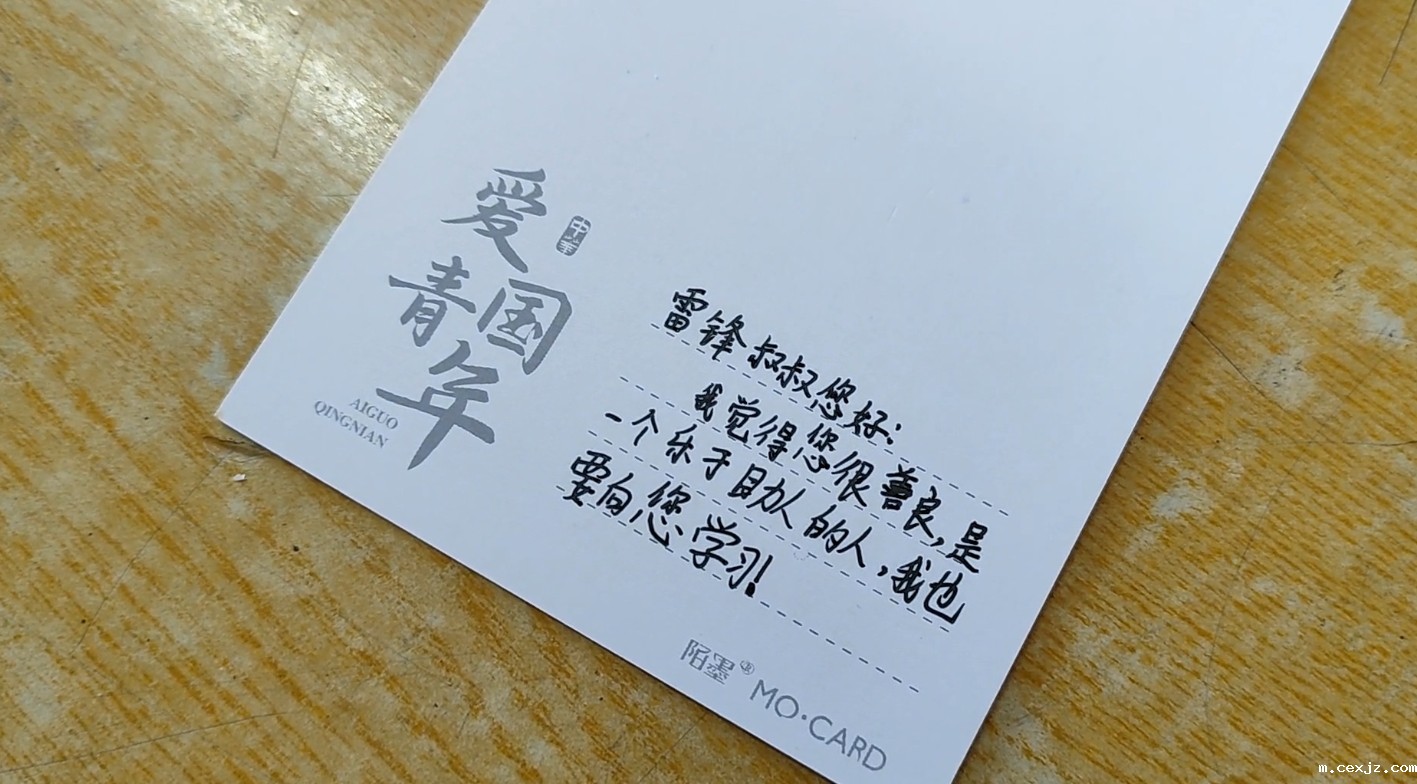 爱国
青年
AIGUO
QINGNIAN
雷锋叔叔您好：
我觉得您很善良,是
一个乐于助人的人,我也
要向您学习!
陌墨®
MO·CARD
m.cexjz.com